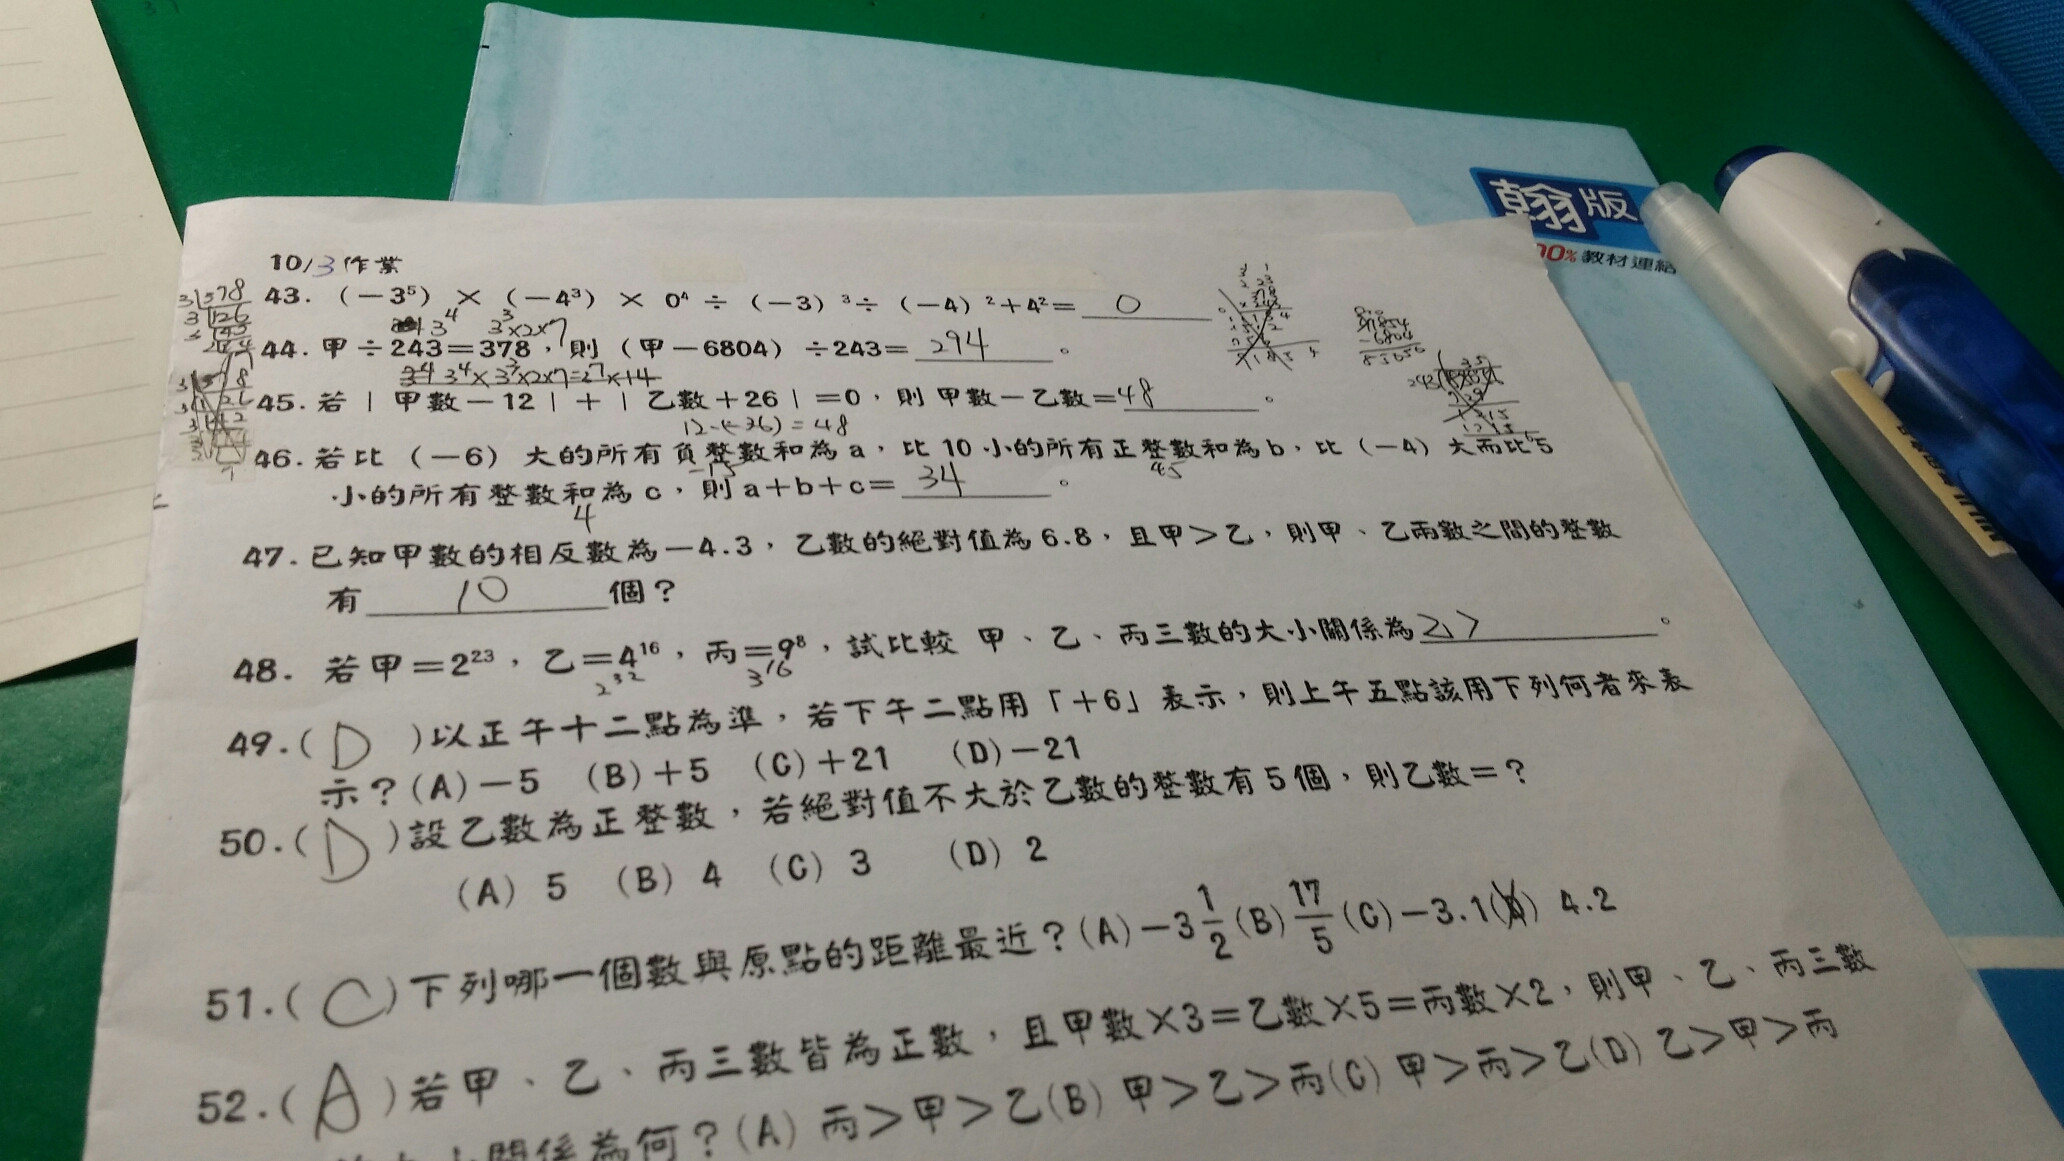 翰版
100%教材連結
10/3作業
43. (-3⁵) × (-4³) × 0⁴ ÷ (-3) ³÷ (-4) ²+4²= 0
3⁴ 3³×2×7
44. 甲÷243=378,則 (甲-6804) ÷243= 294 。
3⁴×3³×2×7=2⁷×14
45. 若|甲數-12|+|乙數+26|=0,則甲數-乙數=48 。
12-(-36)=48
46. 若比 (-6) 大的所有負整數和為a,比10小的所有正整數和為b,比 (-4) 大而比5
-15 45
小的所有整數和為c,則a+b+c= 34 。
4
47. 已知甲數的相反數為-4.3,乙數的絕對值為6.8,且甲>乙,則甲、乙兩數之間的整數
有 10 個?
48. 若甲=2²³,乙=4¹⁶,丙=9⁸,試比較 甲、乙、丙三數的大小關係為乙> 。
2³² 3¹⁶
49. ( D )以正午十二點為準,若下午二點用「+6」表示,則上午五點該用下列何者來表
示?(A)-5 (B)+5 (C)+21 (D)-21
50. ( D )設乙數為正整數,若絕對值不大於乙數的整數有5個,則乙數=?
(A) 5 (B) 4 (C) 3 (D) 2
51. ( C )下列哪一個數與原點的距離最近?(A)-3 1/2 (B) 17/5 (C)-3.1 4.2
52. ( A )若甲、乙、丙三數皆為正數,且甲數×3=乙數×5=丙數×2,則甲、乙、丙三數
關係為何?(A) 丙>甲>乙(B) 甲>乙>丙(C) 甲>丙>乙(D) 乙>甲>丙